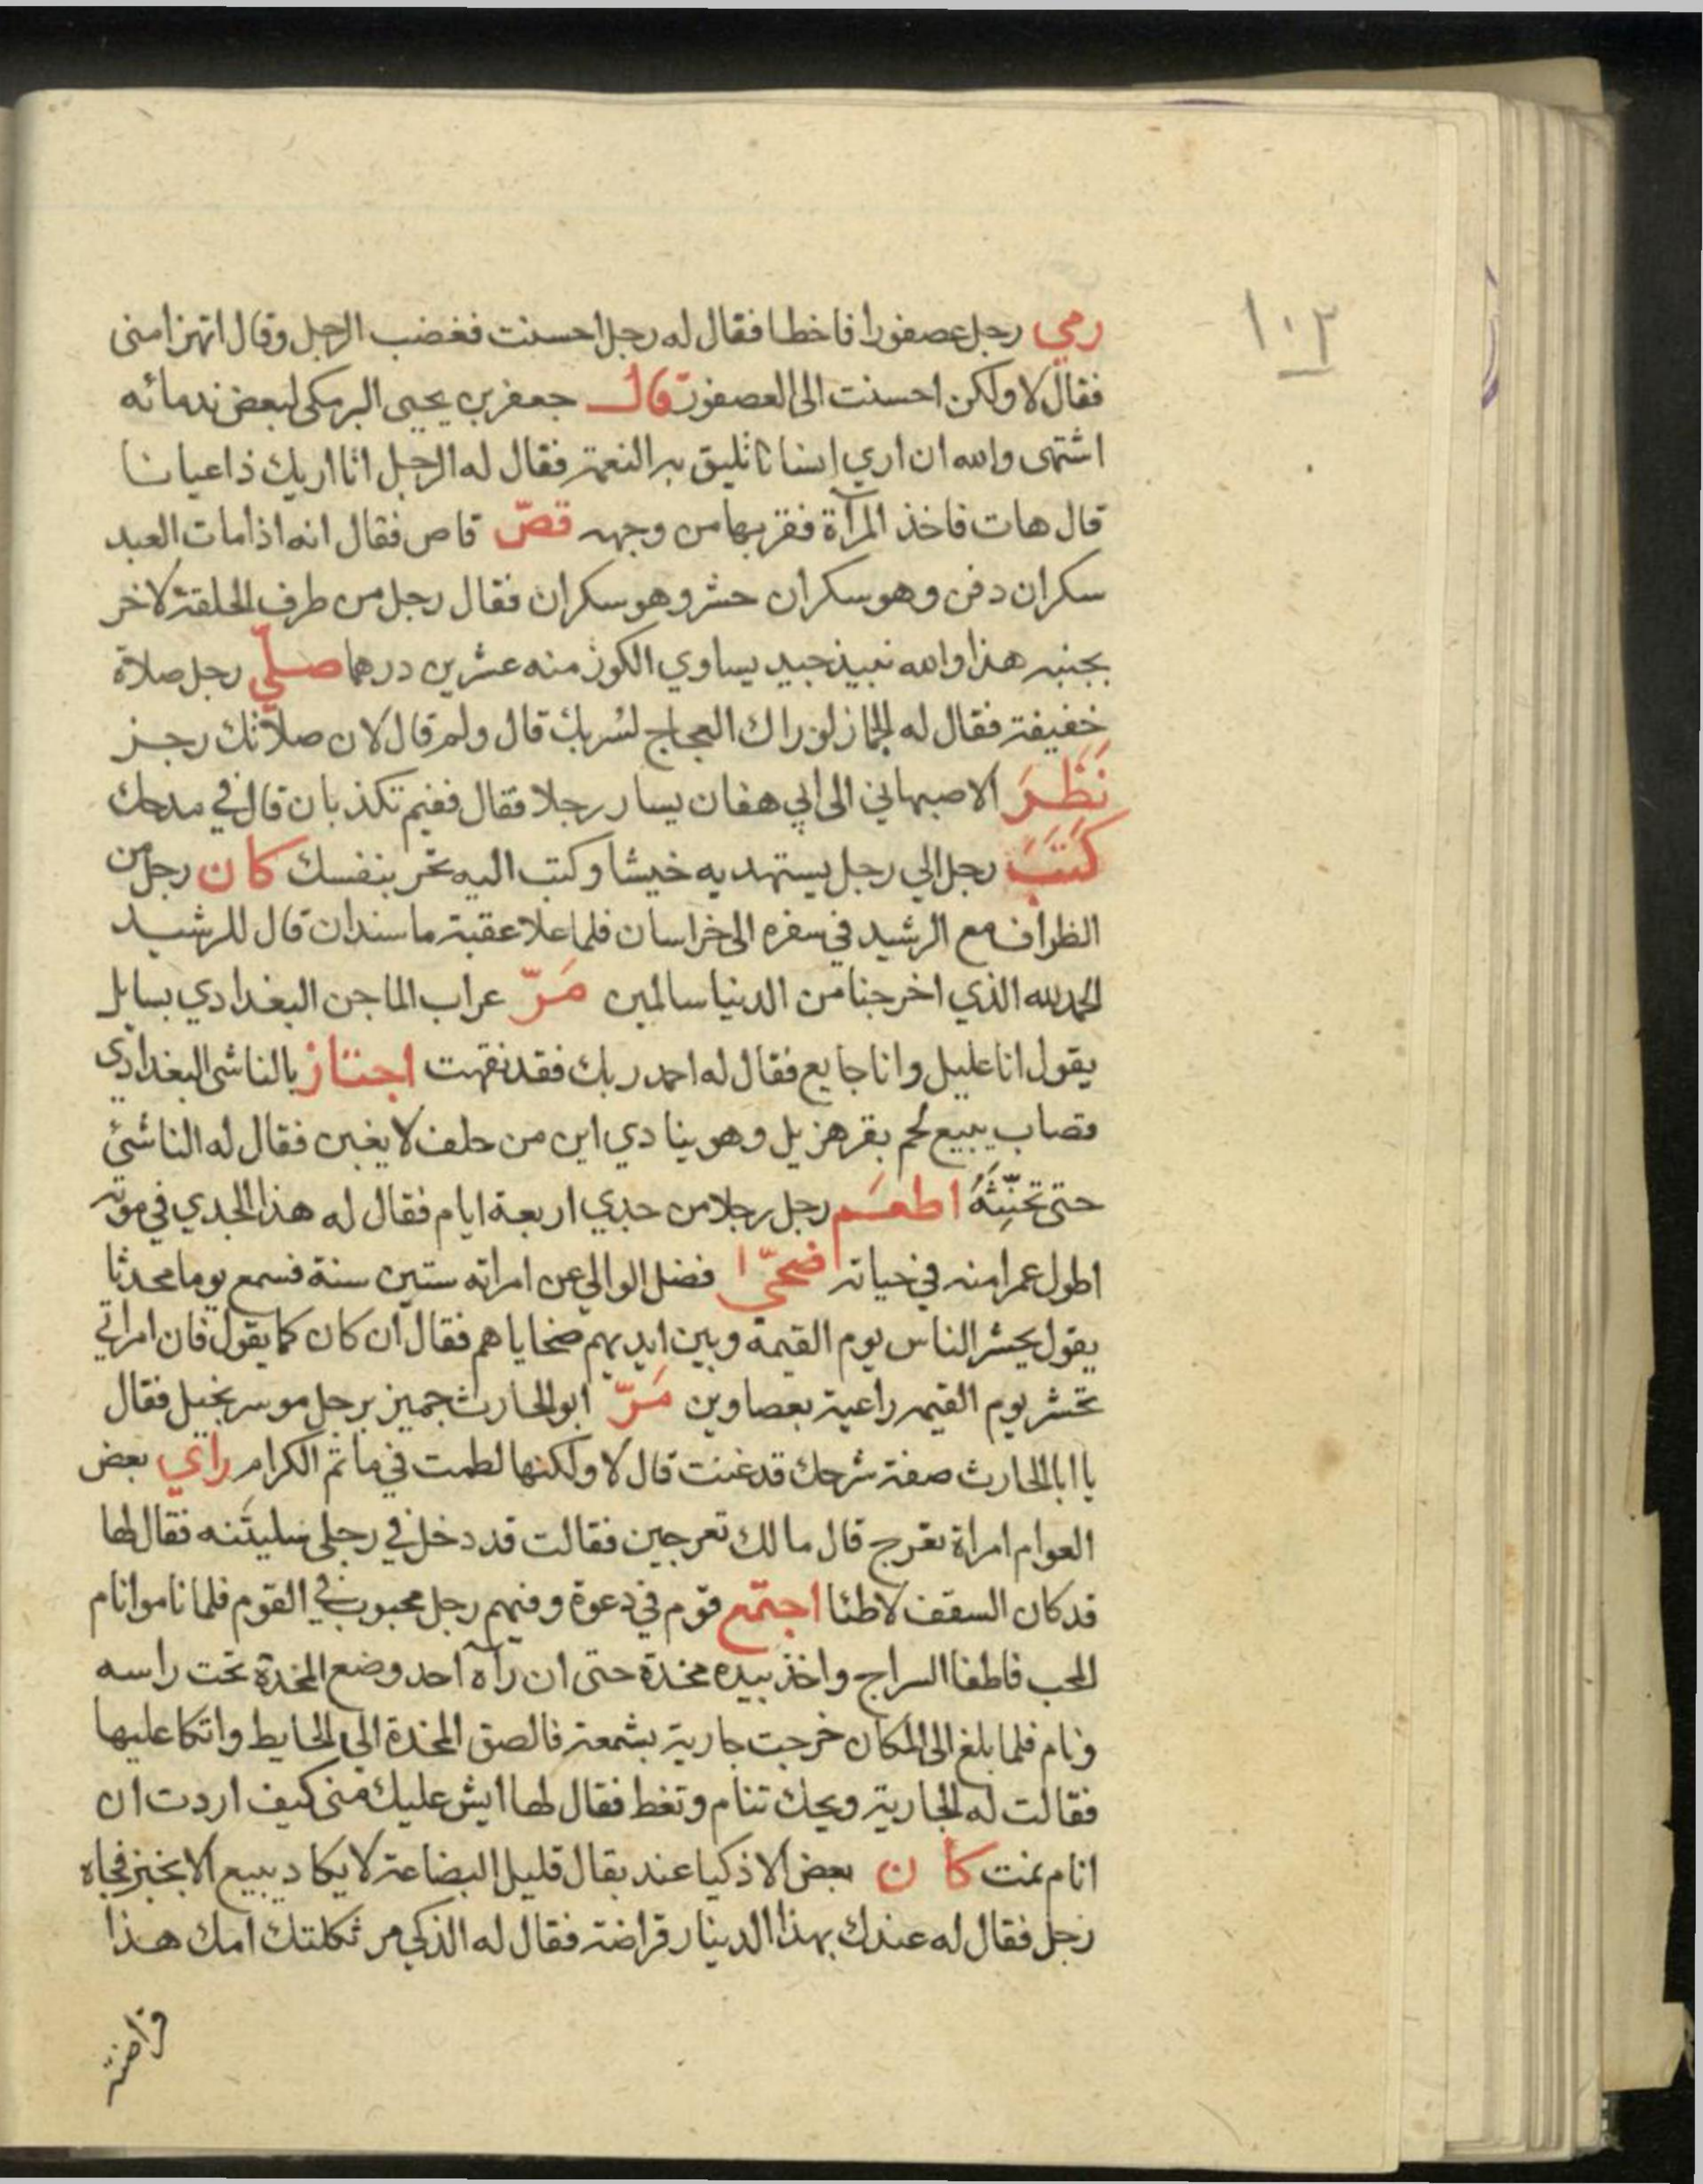 ١٠٣
رمي رجل عصفورا فاخطا فقال له رجل احسنت فغضب الرجل وقال اتهزا مني
فقال لا ولكن احسنت الى العصفور قال جعفر بن يحيى البرمكى لبعض ندمائه
اشتهى والله ان اري انسانا تليق به النعمة فقال له الرجل انا اريك ذا عيانا
قال هات فاخذ المرآة فقربها من وجهه قصّ قاص فقال انه اذا مات العبد
سكران دفن وهو سكران حشر وهو سكران فقال رجل من طرف الحلقة لاخر
بجنبه هذا والله نبيذ جيد يساوي الكوز منه عشرين درهما صلّي رجل صلاة
خفيفة فقال له الجماز لو راك العجاج لسُر بك قال ولم قال لان صلاتك رجز
نَظَرَ الاصبهاني الى ابي هفان يسار رجلا فقال ففيم تكذبان قال في مدحك
كَتَبَ رجل الي رجل يستهديه خيشا وكتب اليه تحر بنفسك كان رجل من
الظراف مع الرشيد في سفره الى خراسان فلما علا عقبة ماسندان قال للرشيد
الحمدلله الذي اخرجنا من الدنيا سالمين مَرّ عراب الماجن البغدادي بسايل
يقول انا عليل وانا جايع فقال له احمد ربك فقد نقهت اجتاز بالناشى البغدادي
قصاب يبيع لحم بقر هزيل وهو ينادي اين من حلف لا يغبن فقال له الناشئ
حتى تحنِّثَهُ اطعَم رجل رجلا من جدي اربعة ايام فقال له هذا الجدي في موته
اطول عمرا منه في حياته ضحّى ا فضل الوالي عن امراته ستين سنة فسمع يوما محدثا
يقول يحشر الناس يوم القيمة وبين ايديهم ضحاياهم فقال ان كان كما يقول فان امراتي
تحشر يوم القيمه راعية بعصاوين مَرّ ابو الحارث جميز برجل موسر بخيل فقال
يا ابا الحارث صفة شرحك قد غنت قال لا ولكنها لطمت في ماتم الكرام راي بعض
العوام امراة تعرج قال مالك تعرجين فقالت قد دخل في رجلى فقال لها
قد كان السقف لاطئا اجتمع قوم في دعوة وفيهم رجل محبوب في القوم فلما ناموا نام
المحب فاطفا السراج واخذ بيده مخدة حتى ان رآه احد وضع المخدة تحت راسه
ونام فلما بلغ الى المكان خرجت جارية بشمعة فالصق المخدة الي الحايط واتكا عليها
فقالت له الجارية ويحك تنام وتغط فقال لها ايش عليك مني كيف اردت ان
انام نمت كان بعض الاذكيا عند بقال قليل البضاعة لا يكاد يبيع الا بخبز فجاه
رجل فقال له عندك بهذا الدينار قراضة فقال له الذكي مر ثكلتك امك هذا
قراضة